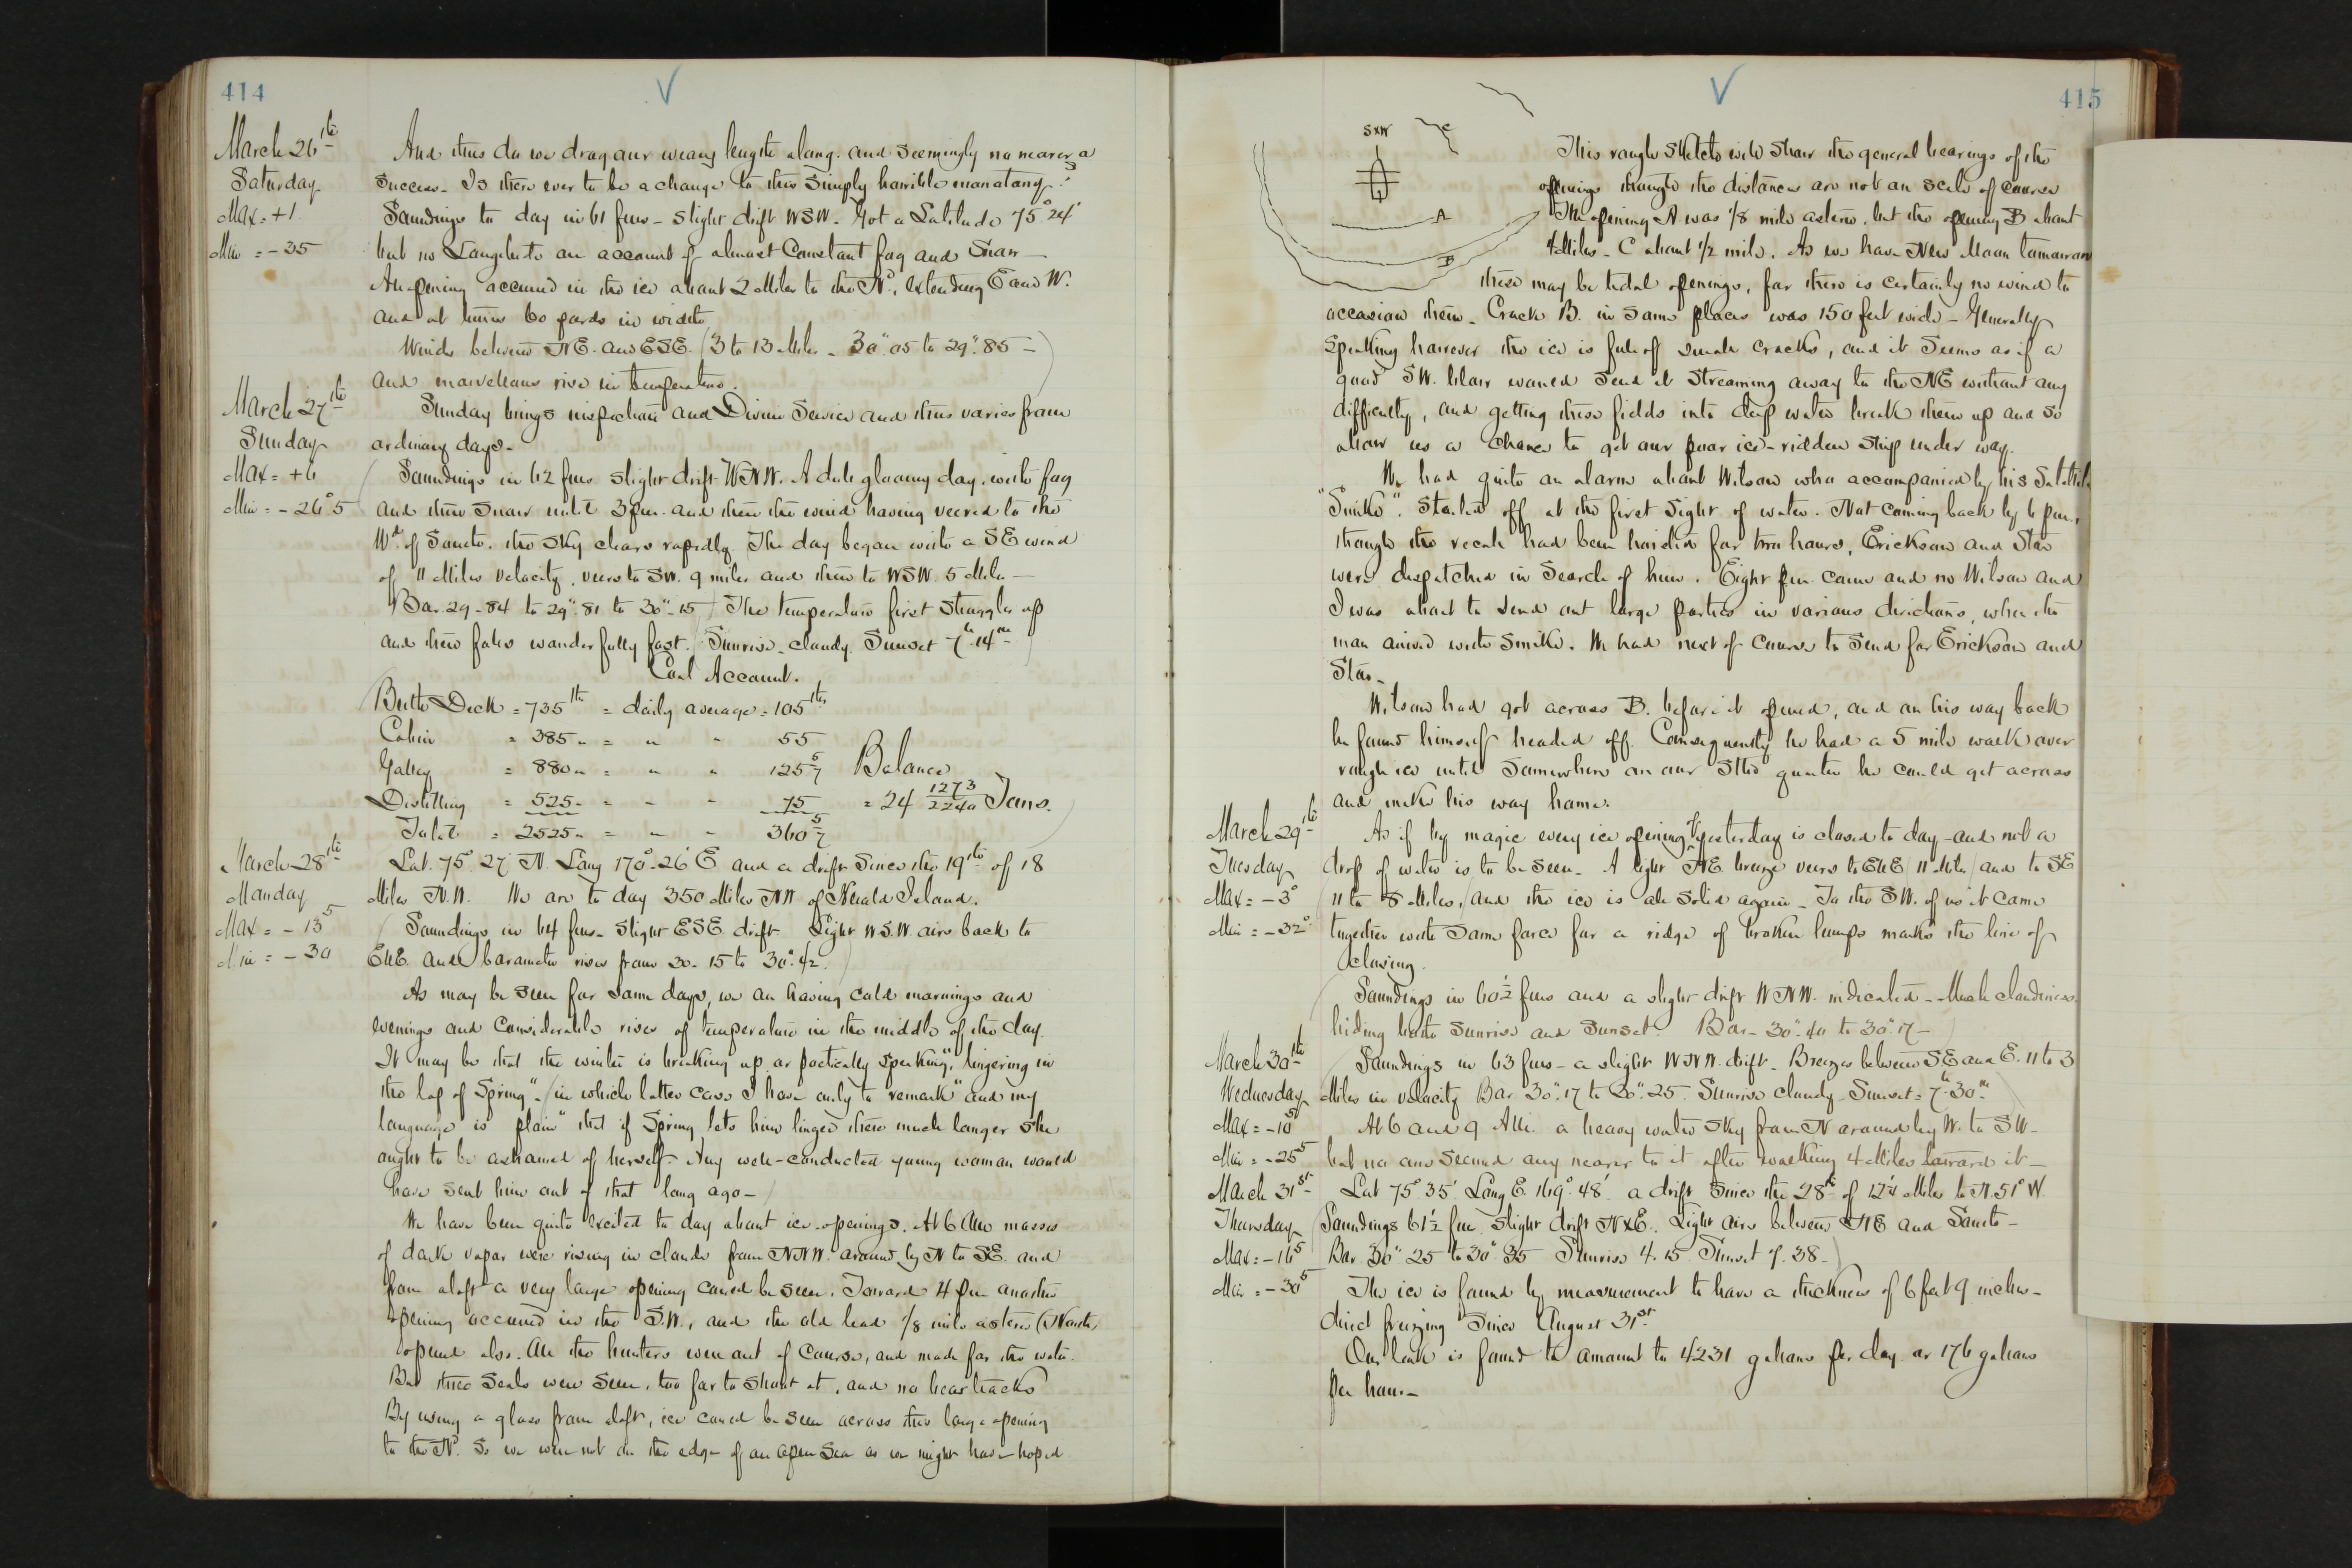 414
March 26th
Saturday
Max = +1
Min = -35
And thus do we drag our weary length along, and seemingly no nearer a
success. Is there ever to be a change to this simply horrible monotony?
Soundings to day in 61 fms - slight drift WSW. Got a Latitude 75° 24'
but no Longitude on account of almost constant fog and snow -
An opening occurred in the ice about 2 Miles to the Nd, extending E and W.
and at times 60 yards in width
Winds between NE. and ESE. (3 to 13 Miles - 30".05 to 29".85 -)
and marvellous rise in temperature.
March 27th
Sunday
Max = +6
Min = -26°5
Sunday brings inspection and Divine Service and thus varies from
ordinary days -
(Soundings in 62 fms slight drift WNW. A dull gloomy day, with fog
and then snow until 3 pm. and then the wind having veered to the
Wd. of South. the sky clears rapidly. The day began with a SE wind
of 11 Miles velocity, veers to SW. 9 miles and then to WSW. 5 Miles -
Bar 29-84 to 29"-81 to 30"-15) The temperature first struggles up
and then falls wonderfully fast. (Sunrise - cloudy. Sunset 7h 14m)
Coal Account.
Berth Deck = 735 lbs = daily average = 105 lbs
Cabin = 385 " = " " 55
Galley = 880 " = " " 125 5/7 Balance
Distilling = 525 " = " " 75 = 24 1273/2240 Tons.
Total = 2525 " = " " 360 5/7
March 28th
Monday
Max = -13 5
Min = -30
Lat. 75° 27' N. Long 170° 26' E and a drift since the 19th of 18
Miles N.W. We are to day 350 Miles NW of Herald Island.
(Soundings in 64 fms - slight ESE. drift. Light W.S.W. airs back to
ENE. and barometer rises from 30-15 to 30".42.)
As may be seen for some days, we are having cold mornings and
evenings and considerable rises of temperature in the middle of the day.
It may be that the winter is breaking up or poetically speaking, "lingering in
the lap of Spring" - (in which latter case I have only to remark "and my
language is plain" that if Spring lets him linger there much longer she
ought to be ashamed of herself. Any well-conducted young woman would
have sent him out of that long ago -)
We have been quite excited to day about ice-openings. At 6 AM masses
of dark vapor were rising in clouds from NNW. around by N to SE. and
from aloft a very large opening could be seen. Toward 4 pm another
opening occurred in the S.W., and the old lead 1/8 mile astern (North)
opened also. All the hunters were out of course, and made for the water.
But three seals were seen, too far to shoot at, and no bear tracks
By using a glass from aloft, ice could be seen across this large opening
to the Nd. So we were not on the edge of an open sea as we might have hoped
415
SxW
C
A
B
This rough sketch will show the general bearings of the
openings though the distances are not on scale of course
The opening A was 1/8 mile astern, but the opening B about
4 Miles - C about 1/2 mile. As we have New Moon tomorrow
these may be tidal openings, for there is certainly no wind to
occasion them. Crack B. in some places was 150 feet wide - Generally
speaking however the ice is full of small cracks, and it seems as if a
good SW. blow would send it streaming away to the NE without any
difficulty, and getting these fields into deep water break them up and so
allow us a chance to get our poor ice-ridden ship under way.
We had quite an alarm about Wilson who accompanied by his Satellite
"Smike". Started off at the first sight of water. Not coming back by 6 pm.,
though the recall had been hoisted for two hours, Ericksen and Starr
were despatched in search of him. Eight pm. came and no Wilson and
I was about to send out large parties in various directions, when the
man arrived with Smike. We had next of course to send for Ericksen and
Starr -
Wilson had got across B. before it opened, and on his way back
he found himself headed off. Consequently he had a 5 mile walk over
rough ice until somewhere on our Stbd quarter he could get across
and make his way home.
March 29th
Tuesday
Max = -3°
Min = -32°
As if by magic every ice opening of yesterday is closed to day - and not a
drop of water is to be seen. A light NE. breeze veers to ENE (11 Miles) and to SE
11 to 8 Miles, (and the ice is all solid again - To the SW. of us it came
together with some force for a ridge of broken lumps marks the line of
closing.
(Soundings in 60 1/2 fms and a slight drift WNW. indicated - Much cloudiness
hiding both sunrise and sunset. Bar - 30".40 to 30".17 -)
March 30th
Wednesday
Max = -10 5
Min = -25 5
(Soundings in 63 fms - a slight WNW. drift - Breezes between SE and E. 11 to 3
Miles in velocity Bar 30".17 to 30".25. Sunrise cloudy - Sunset = 7h 30m)
At 6 and 9 AM. a heavy water sky from N around by W. to SW -
but no one seemed any nearer to it after walking 4 Miles toward it -
March 31st
Thursday
Max = -16 5
Min = -30 5
Lat 75° 35' Long E. 169° 48' a drift since the 28th of 12 1/4 Miles to N. 51° W.
(Soundings 61 1/2 fms. slight drift NxE. Light airs between NE and South -
Bar 30" 25 to 30" 35 Sunrise 4. 15 Sunset 7. 38 -)
The ice is found by measurement to have a thickness of 6 feet 9 inches -
direct freezing since August 31st
Our leak is found to amount to 4231 gallons per day or 176 gallons
per hour -